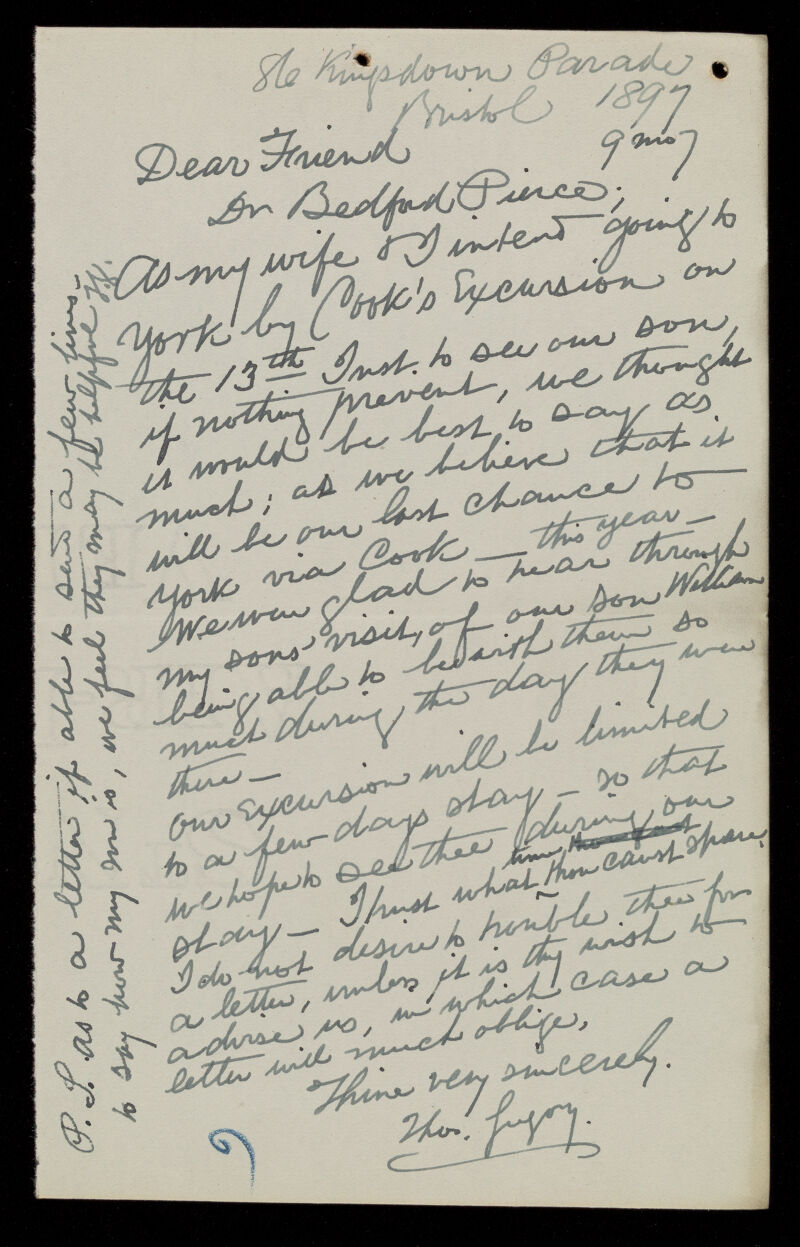 86 Kingsdown Parade
Bristol 1897
9 mo 7
Dear Friend
Dr Bedford Pierce;
As my wife & I intend going to
York by Cook's Excursion on
the 13th Inst. to see our son,
if nothing prevent, we thought
it would be best to say as
much; as we believe that it
will be our last chance to
York via Cook — this year —
We were glad to hear through
my sons' visit, of our son William
being able to be with them so
much during the day they were
there —
Our Excursion will be limited
to a few days stay — so that
we hope to see thee during our
stay — I trust what time thou canst spare.
I do not desire to trouble thee for
a letter, unless it is thy wish to
advise us, in which case a
letter will much oblige,
Thine very sincerely.
Thos. Gregory.
9
P.S. as to a letter if able to send a few lines —
to say how my son is, we feel they may be helpful